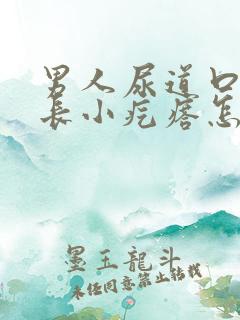 男人尿道口
长小疙瘩怎
墨玉龍斗
未经同意禁止转载